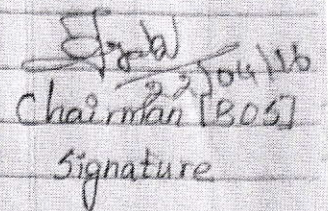 22/04/16
Chairman [BOS]
Signature